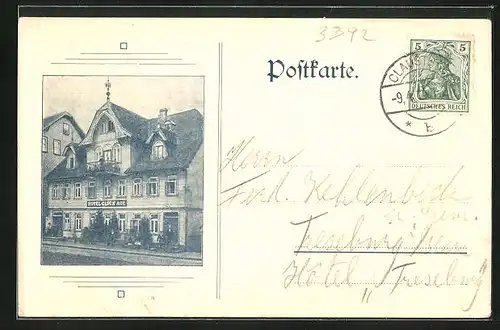 3392
Postkarte.
5 5
DEUTSCHES REICH
CLAUS
-9.
* b
HOTEL GLÜCK AUF
Herrn
Ferd. Kehlenbeck
Treseburg
Hôtel "Treseburg"